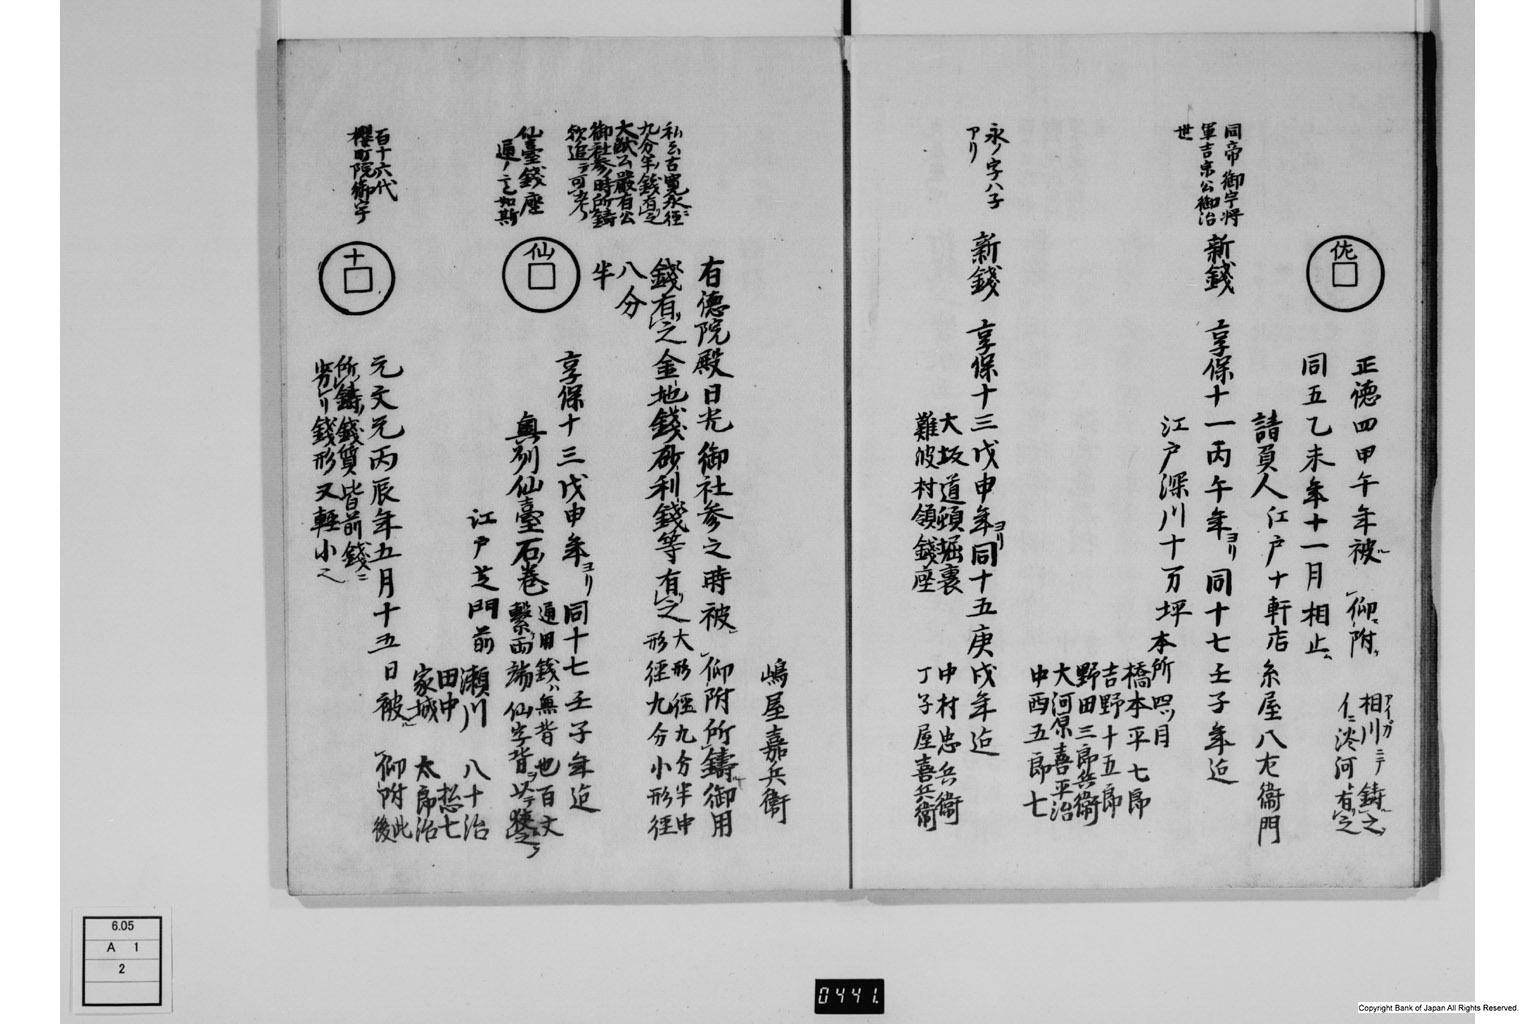 佐
正徳四甲午年被 仰附 相川ニテ鋳之
アイカワ
仁淤河有之
同五乙未年十一月相止
請負人江戸十軒店 糸屋八左衛門
同帝御宇将
軍吉宗公御治
世
新銭 享保十一丙午年ヨリ同十七壬子年迄
江戸深川十万坪
本所四ツ目
橋本平七郎
吉野十五郎
野田三郎兵衛
大河原喜平治
中西五郎七
永ノ字ハ子
アリ
新銭 享保十三戊申年ヨリ同十五庚戌年迄
大坂道頓堀裏
難波村領銭座
中村忠兵衛
丁子屋喜兵衛
嶋屋嘉兵衛
有徳院殿日光御社参之時被 仰附所鋳御用
銭有之金地銭砂利銭等有之
大形径九分半中
形径九分小形径
八分
半
私云古寛永径
九分半ノ銭有之
大猷公厳有公
御社参ノ時所鋳
欤追テ可考
仙臺銭座
通ノ
如斯
仙
享保十三戊申年ヨリ同十七壬子年迄
奥列仙臺石巻
通用銭ハ無背也百文
繋両端仙字背ヲ以テ挾之
江戸芝門前
瀬川 八十治
田中 惣七
家城 太郎治
百十六代
櫻町院御宇
十
元文元丙辰年五月十五日被 仰附
此後
所鋳銭質皆前銭ニ
劣レリ銭形又軽小也
6.05
A 1
2
0441.
Copyright Bank of Japan All Rights Reserved.